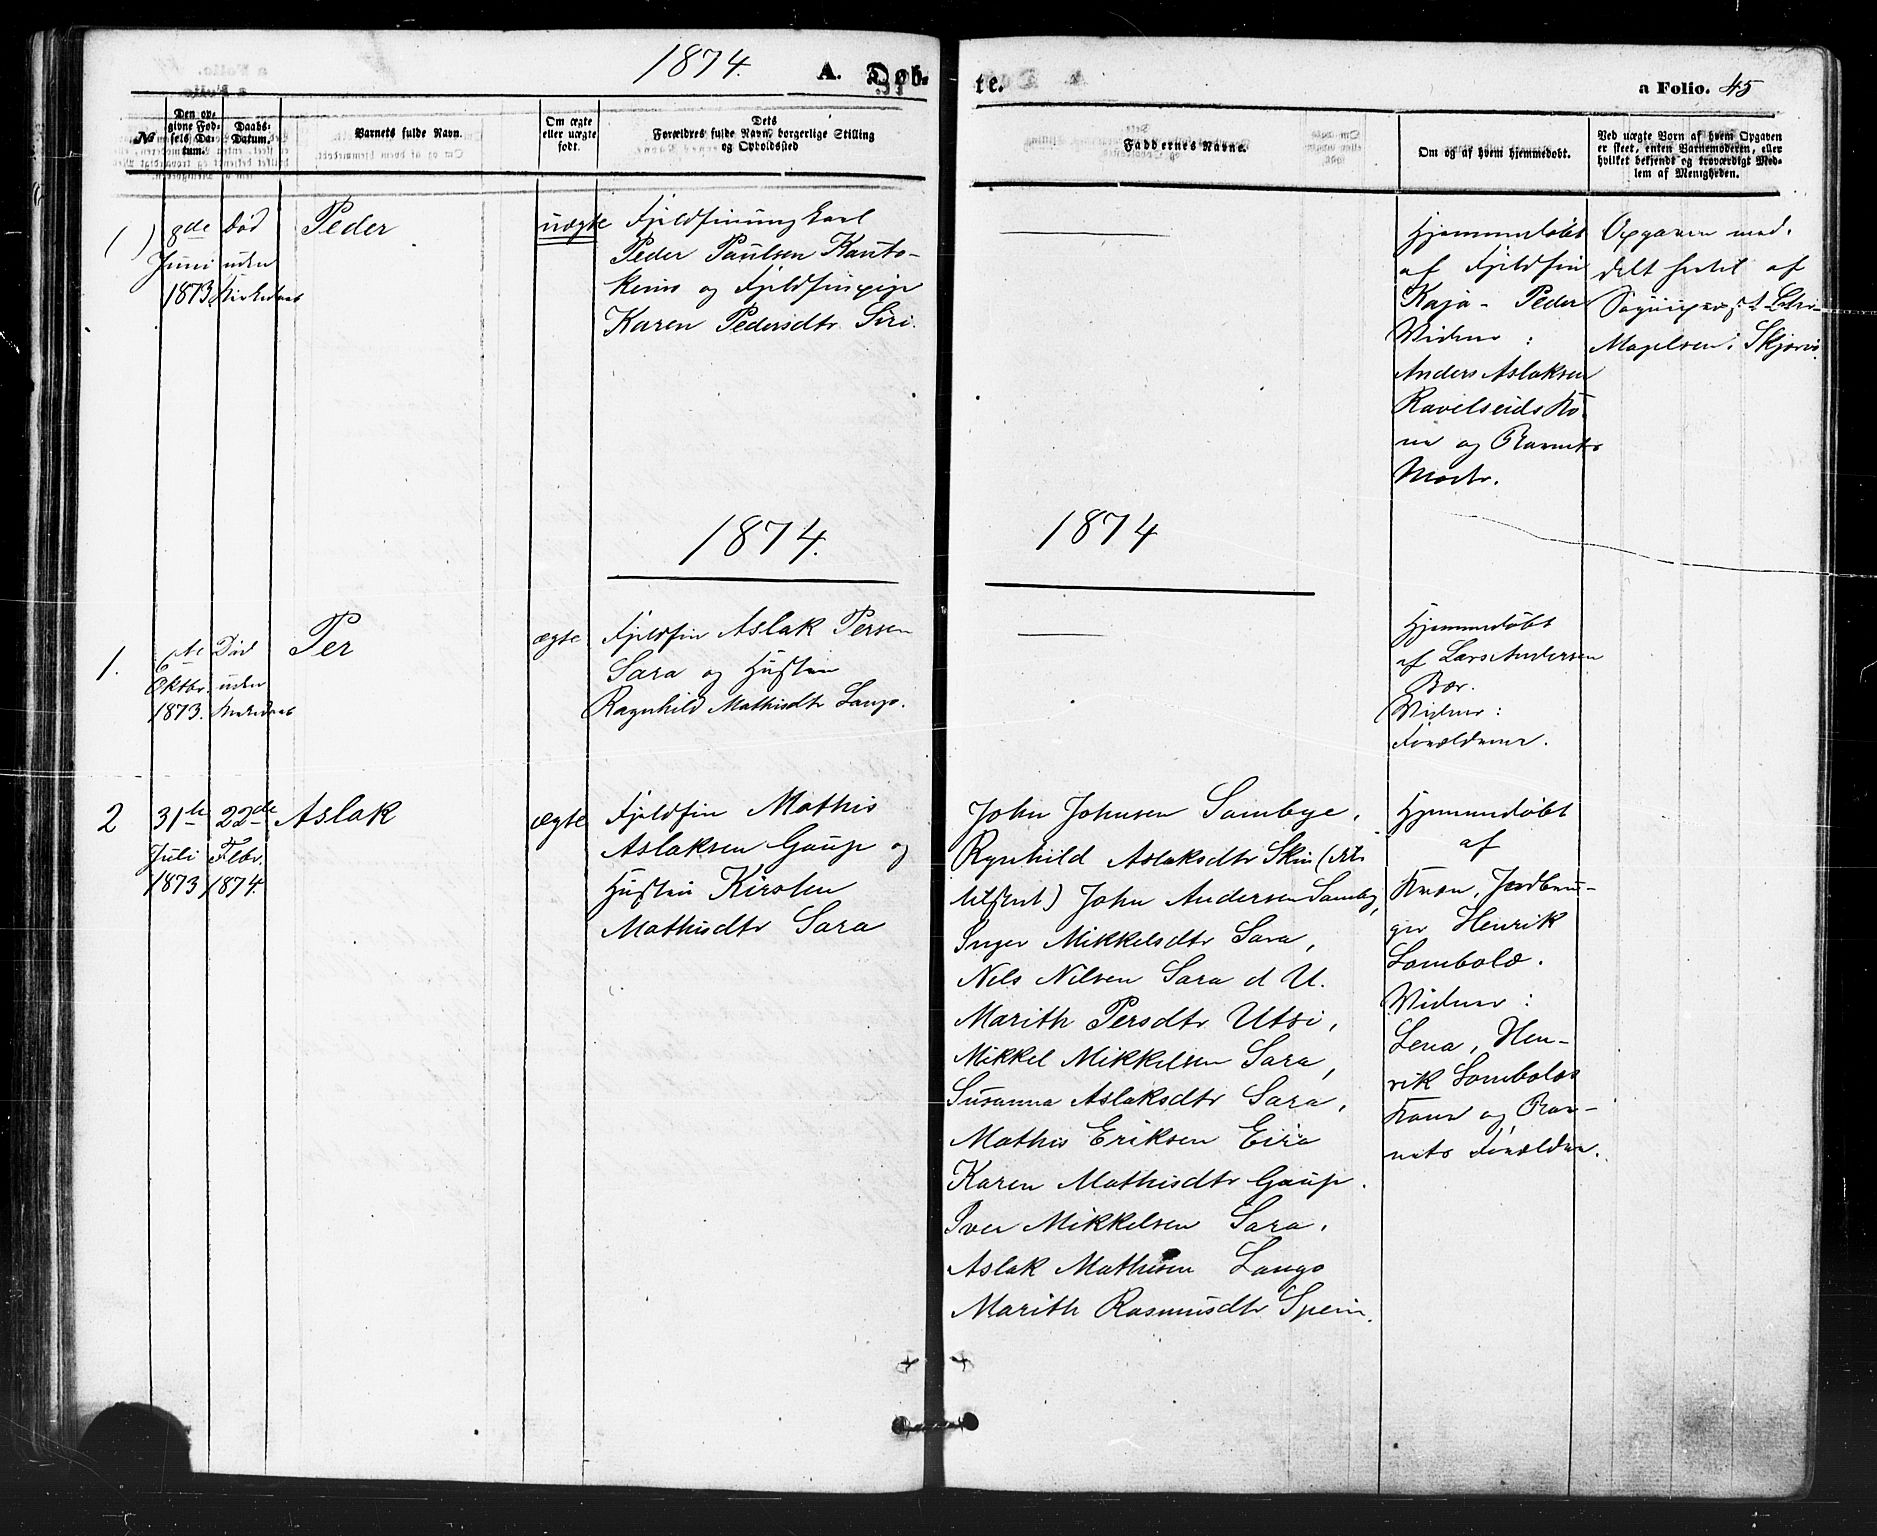 1874.
A. Døb-
te.
a Folio. 45
№
Den op-
givne Fød-
sels Da-
tum.
Daabs-
Datum.
Barnets fulde Navn.
Om ægte
eller uægte
født.
Dets
Forældres fulde Navn, borgerlige Stilling
og Opholdssted
Faddernes Navne.
Om og af hvem hjemmedøbt.
Ved uægte Børn af hvem Opgaven
er skeet, enten Barnemoderen, eller
hvilket bekjendt og troværdigt Med-
lem af Menigheden.
( )
8de
Juni
1873
Død
uden
Kirkedaab
Peder
uægte
Fjeldfinungkarl
Peder Paulsen Kauto-
keino og Fjeldfinpige
Karen Pedersdtr. Siri.
Hjemmedøbt
af Fjeldfin
Kaja- Peder
Vidner:
Anders Aslaksen
Ravelseids Ko-
ne og Barnets
Moder.
Opgaven med-
delt hertil af
Sognepræst
Magelsen i Skjervø
1874.
1874
1.
6te
Oktbr.
1873.
Død
uden
Kirkedaab
Per
ægte
Fjeldfin Aslak Persen
Sara og Hustru
Ragnhild Mathisdtr Lango.
Hjemmedøbt
af Lars Andersen
Bær.
Vidner:
Forældrene.
2
31te
Juli
1873
22de
Febr.
1874.
Aslak
ægte
Fjeldfin Mathis
Aslaksen Gaup og
Hustru Kirsten
Mathisdtr Sara
John Johnsen Sombye,
Ragnhild Aslaksdtr Skin (ikke
tilstede) John Andersen Somby,
Inger Mikkelsdtr Sara,
Nils Nilsen Sara d U.
Marith Persdtr Utsi,
Mikkel Mikkelsen Sara,
Susanna Aslaksdtr Sara,
Mathis Eriksen Eira
Karen Mathisdtr Gaup.
Iver Mikkelsen Sara,
Aslak Mathisen Lango
Marith Rasmusdtr Spein.
Hjemmedøbt
af
Kvæn, Jordbru-
ger Henrik
Lombola.
Vidner:
Lena, Hen-
rik Lombolas
Kone og Bar-
nets Forældre.